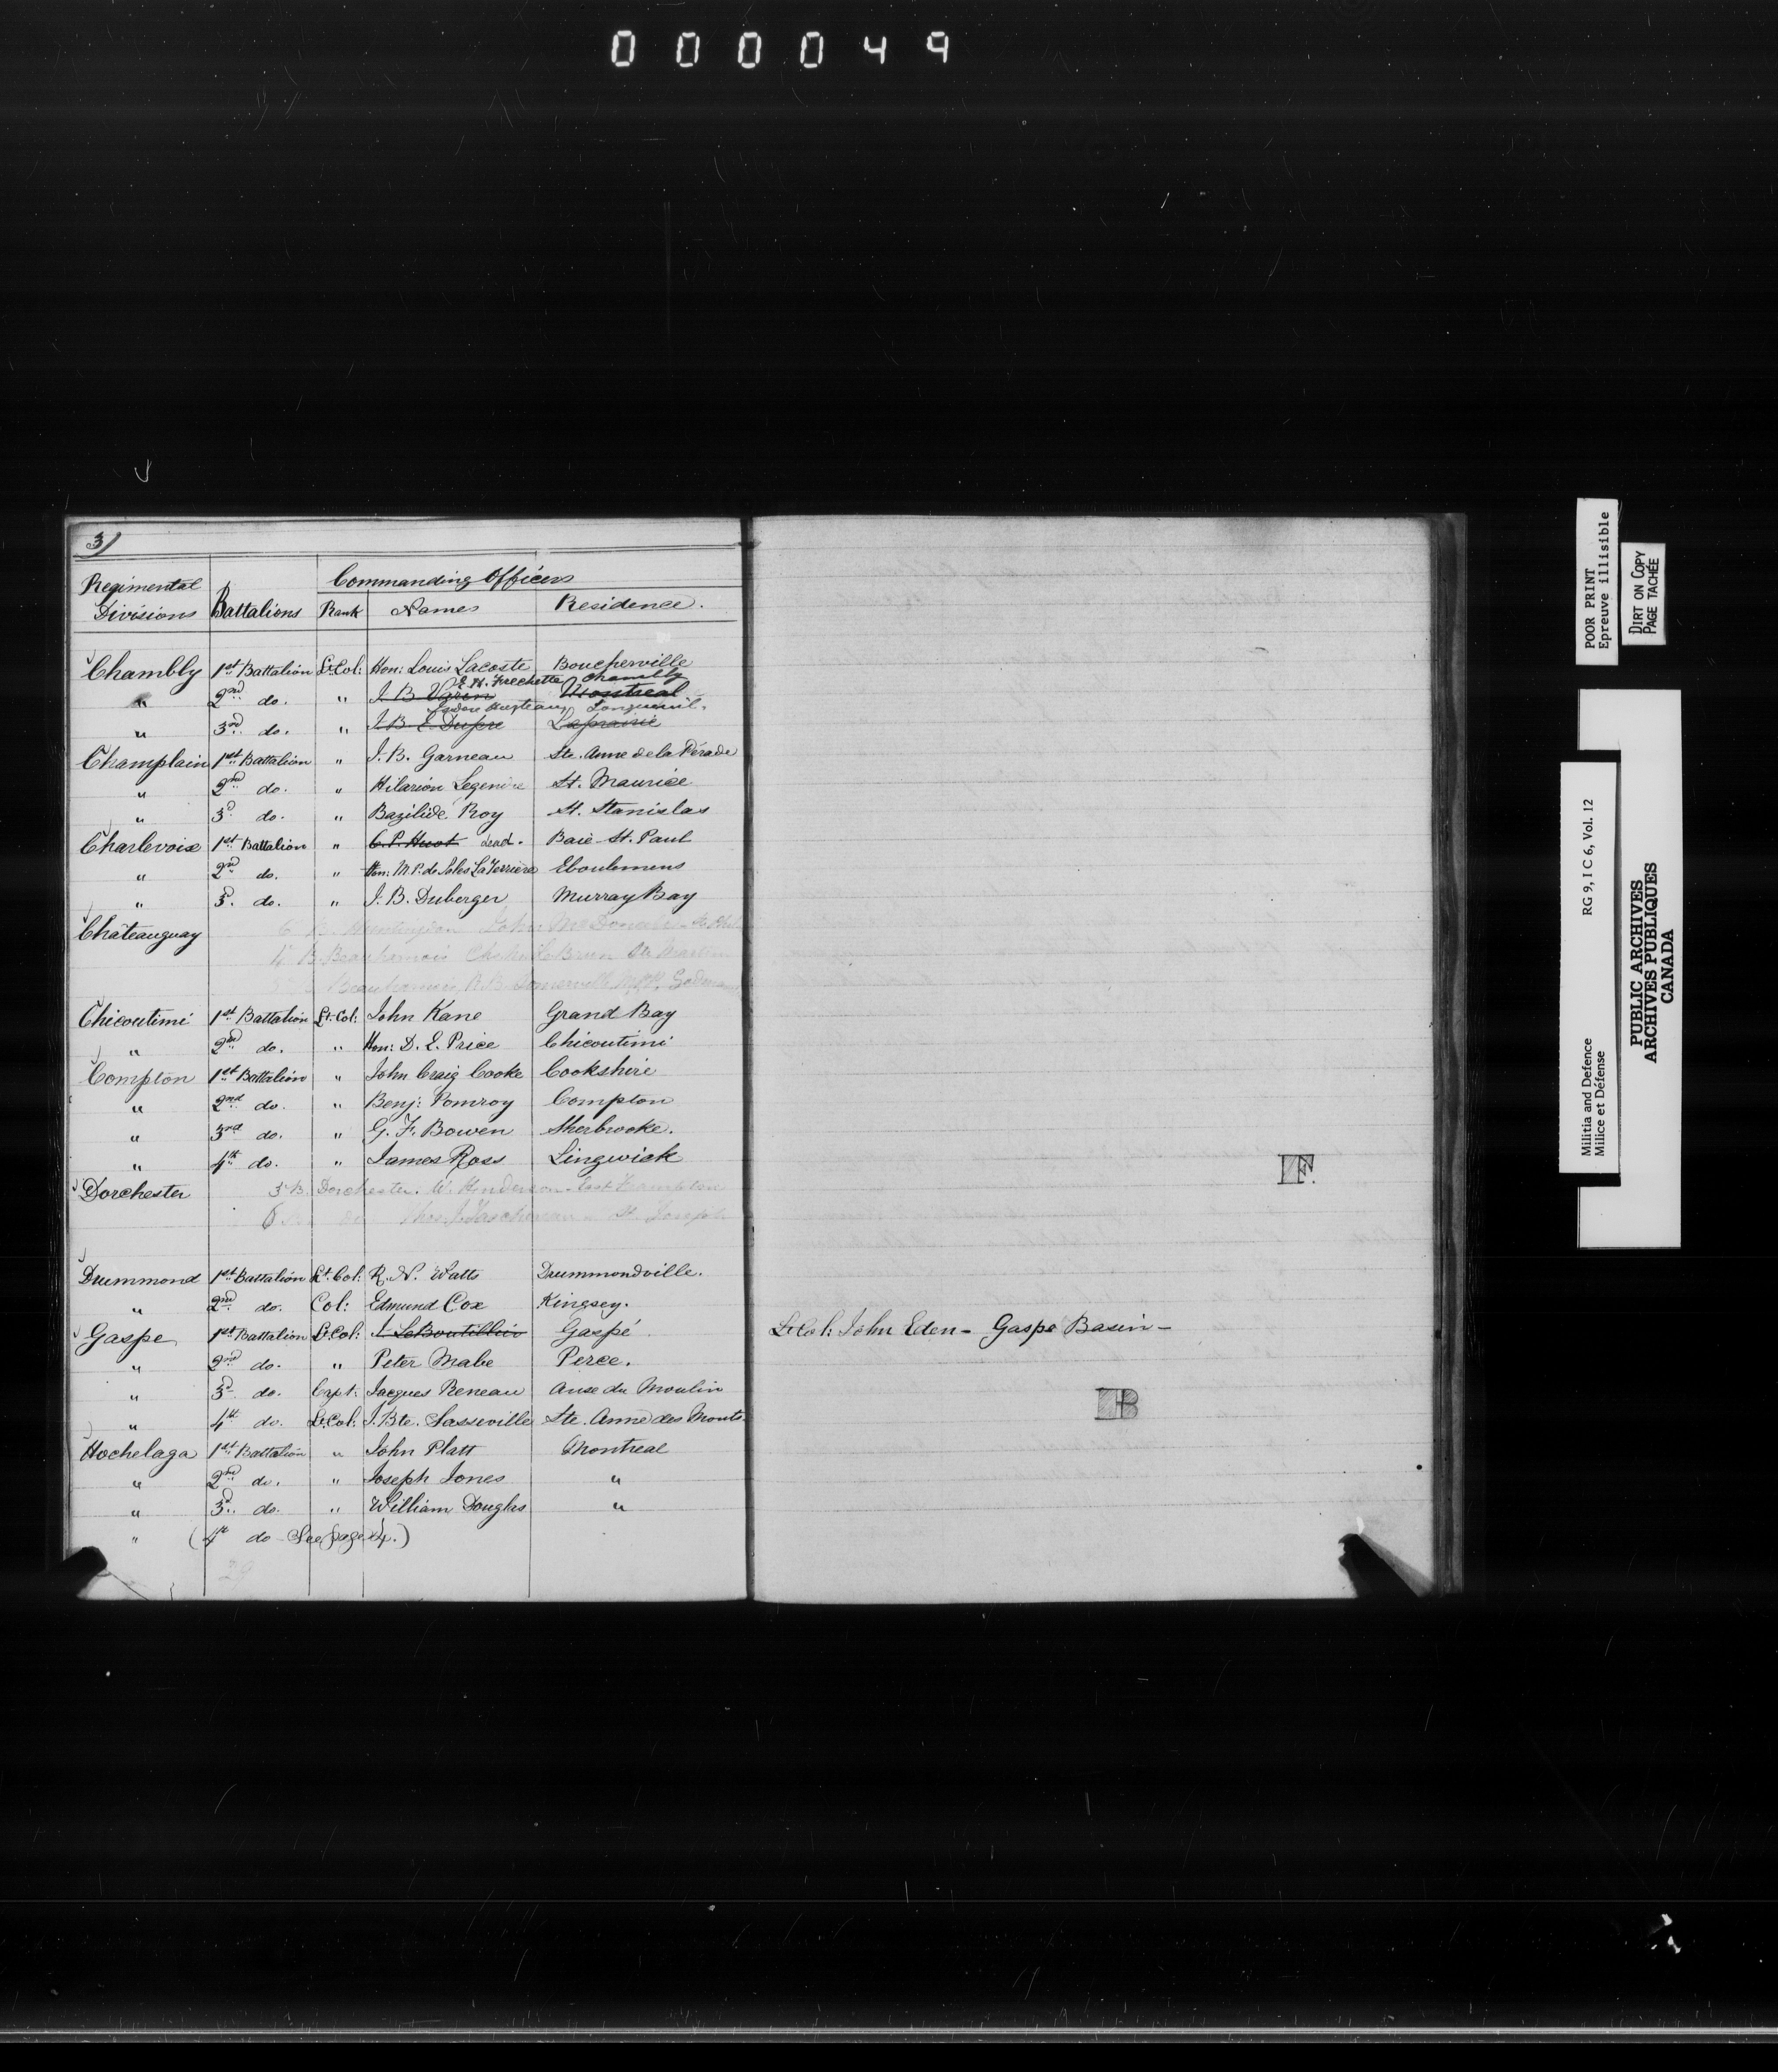 000049
3)
Commanding Officers
Regimental Divisions Battalions Rank Names Residence.
Chambly 1st Battalion Lt. Col: Hon: Louis Lacoste Boucherville
E. H. Frechette Chambly
" 2nd do. " J. B. Varin Montreal
Isidore Hurteau Longueuil.
" 3rd do. " J. B. E. Dupre Laprairie
Champlain 1st Battalion " J. B. Garneau Ste. Anne de la Pérade
" 2nd do. " Hilarion Legendre St. Maurice
" 3d do. " Bazilide Roy St. Stanislas
Charlevoix 1st Battalion " C. P. Huot dead. Baie St. Paul
" 2nd do. " Hon: M. P. de Sales LaTerrière Eboulemens
" 3d. do. " J. B. Duberger Murray Bay
6 B. Huntingdon John McDonald
Châteauguay
4 B. Beauharnois LeBrun Ste Martine
Beauharnois R. B. Somerville
Chicoutimi 1st Battalion Lt. Col: John Kane Grand Bay
" 2nd do. " Hon: D. E. Price Chicoutimi
Compton 1st Battalion " John Craig Cooke Cookshire
" 2nd do. " Benj: Pomroy Compton
" 3rd do. " G. F. Bowen Sherbrooke.
" 4th do. " James Ross Lingwick
Dorchester 3 B. Dorchester. W. Henderson - East Frampton
6 B. do Thos. J. Taschereau - St. Joseph
Drummond 1st Battalion Lt. Col: R. N. Watts Drummondville.
" 2nd do. Col: Edmund Cox Kingsey.
Gaspe 1st Battalion Lt. Col: J. LeBoutillier Gaspé
" 2nd do. " Peter Mabe Perce.
" 3d do. Capt: Jacques Reneau Anse du Moulin
" 4th do. Lt. Col: J. Bte. Sasseville Ste. Anne des Monts
Hochelaga 1st Battalion " John Platt Montreal
" 2nd do. " Joseph Jones "
" 3d. do. " William Douglas "
" (4th do - See page 4.)
29
F.
Lt Col: John Eden - Gaspe Basin -
B
POOR PRINT
Epreuve illisible
DIRT ON COPY
PAGE TACHÉE
Militia and Defence RG 9, I C 6, Vol. 12
Milice et Défense
PUBLIC ARCHIVES
ARCHIVES PUBLIQUES
CANADA